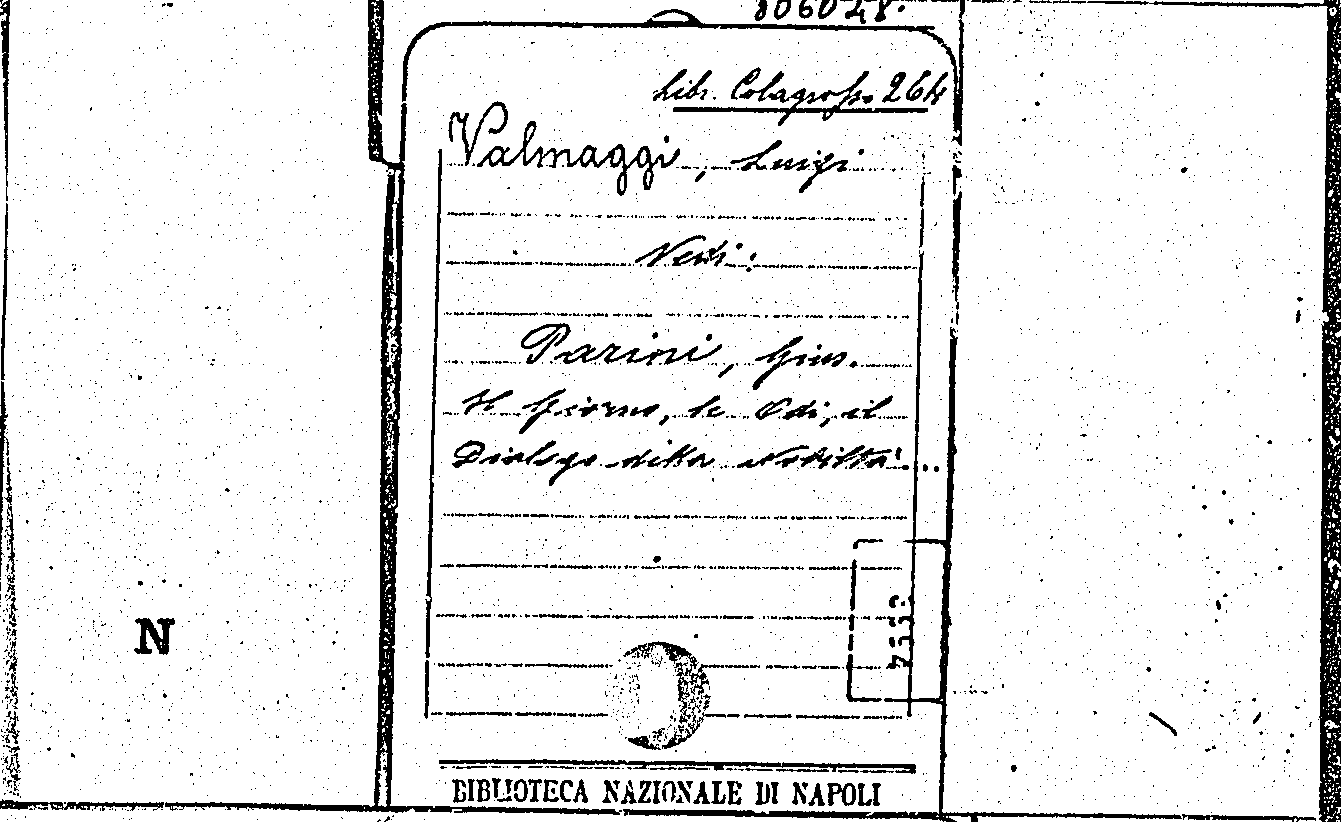 806028.
Libr. Colagrosso 264
Valmaggi, Luigi
Vedi:
Parini, Gius.
Il Giorno, le Odi, il
Dialogo della Nobiltà...
N
BIBLIOTECA NAZIONALE DI NAPOLI